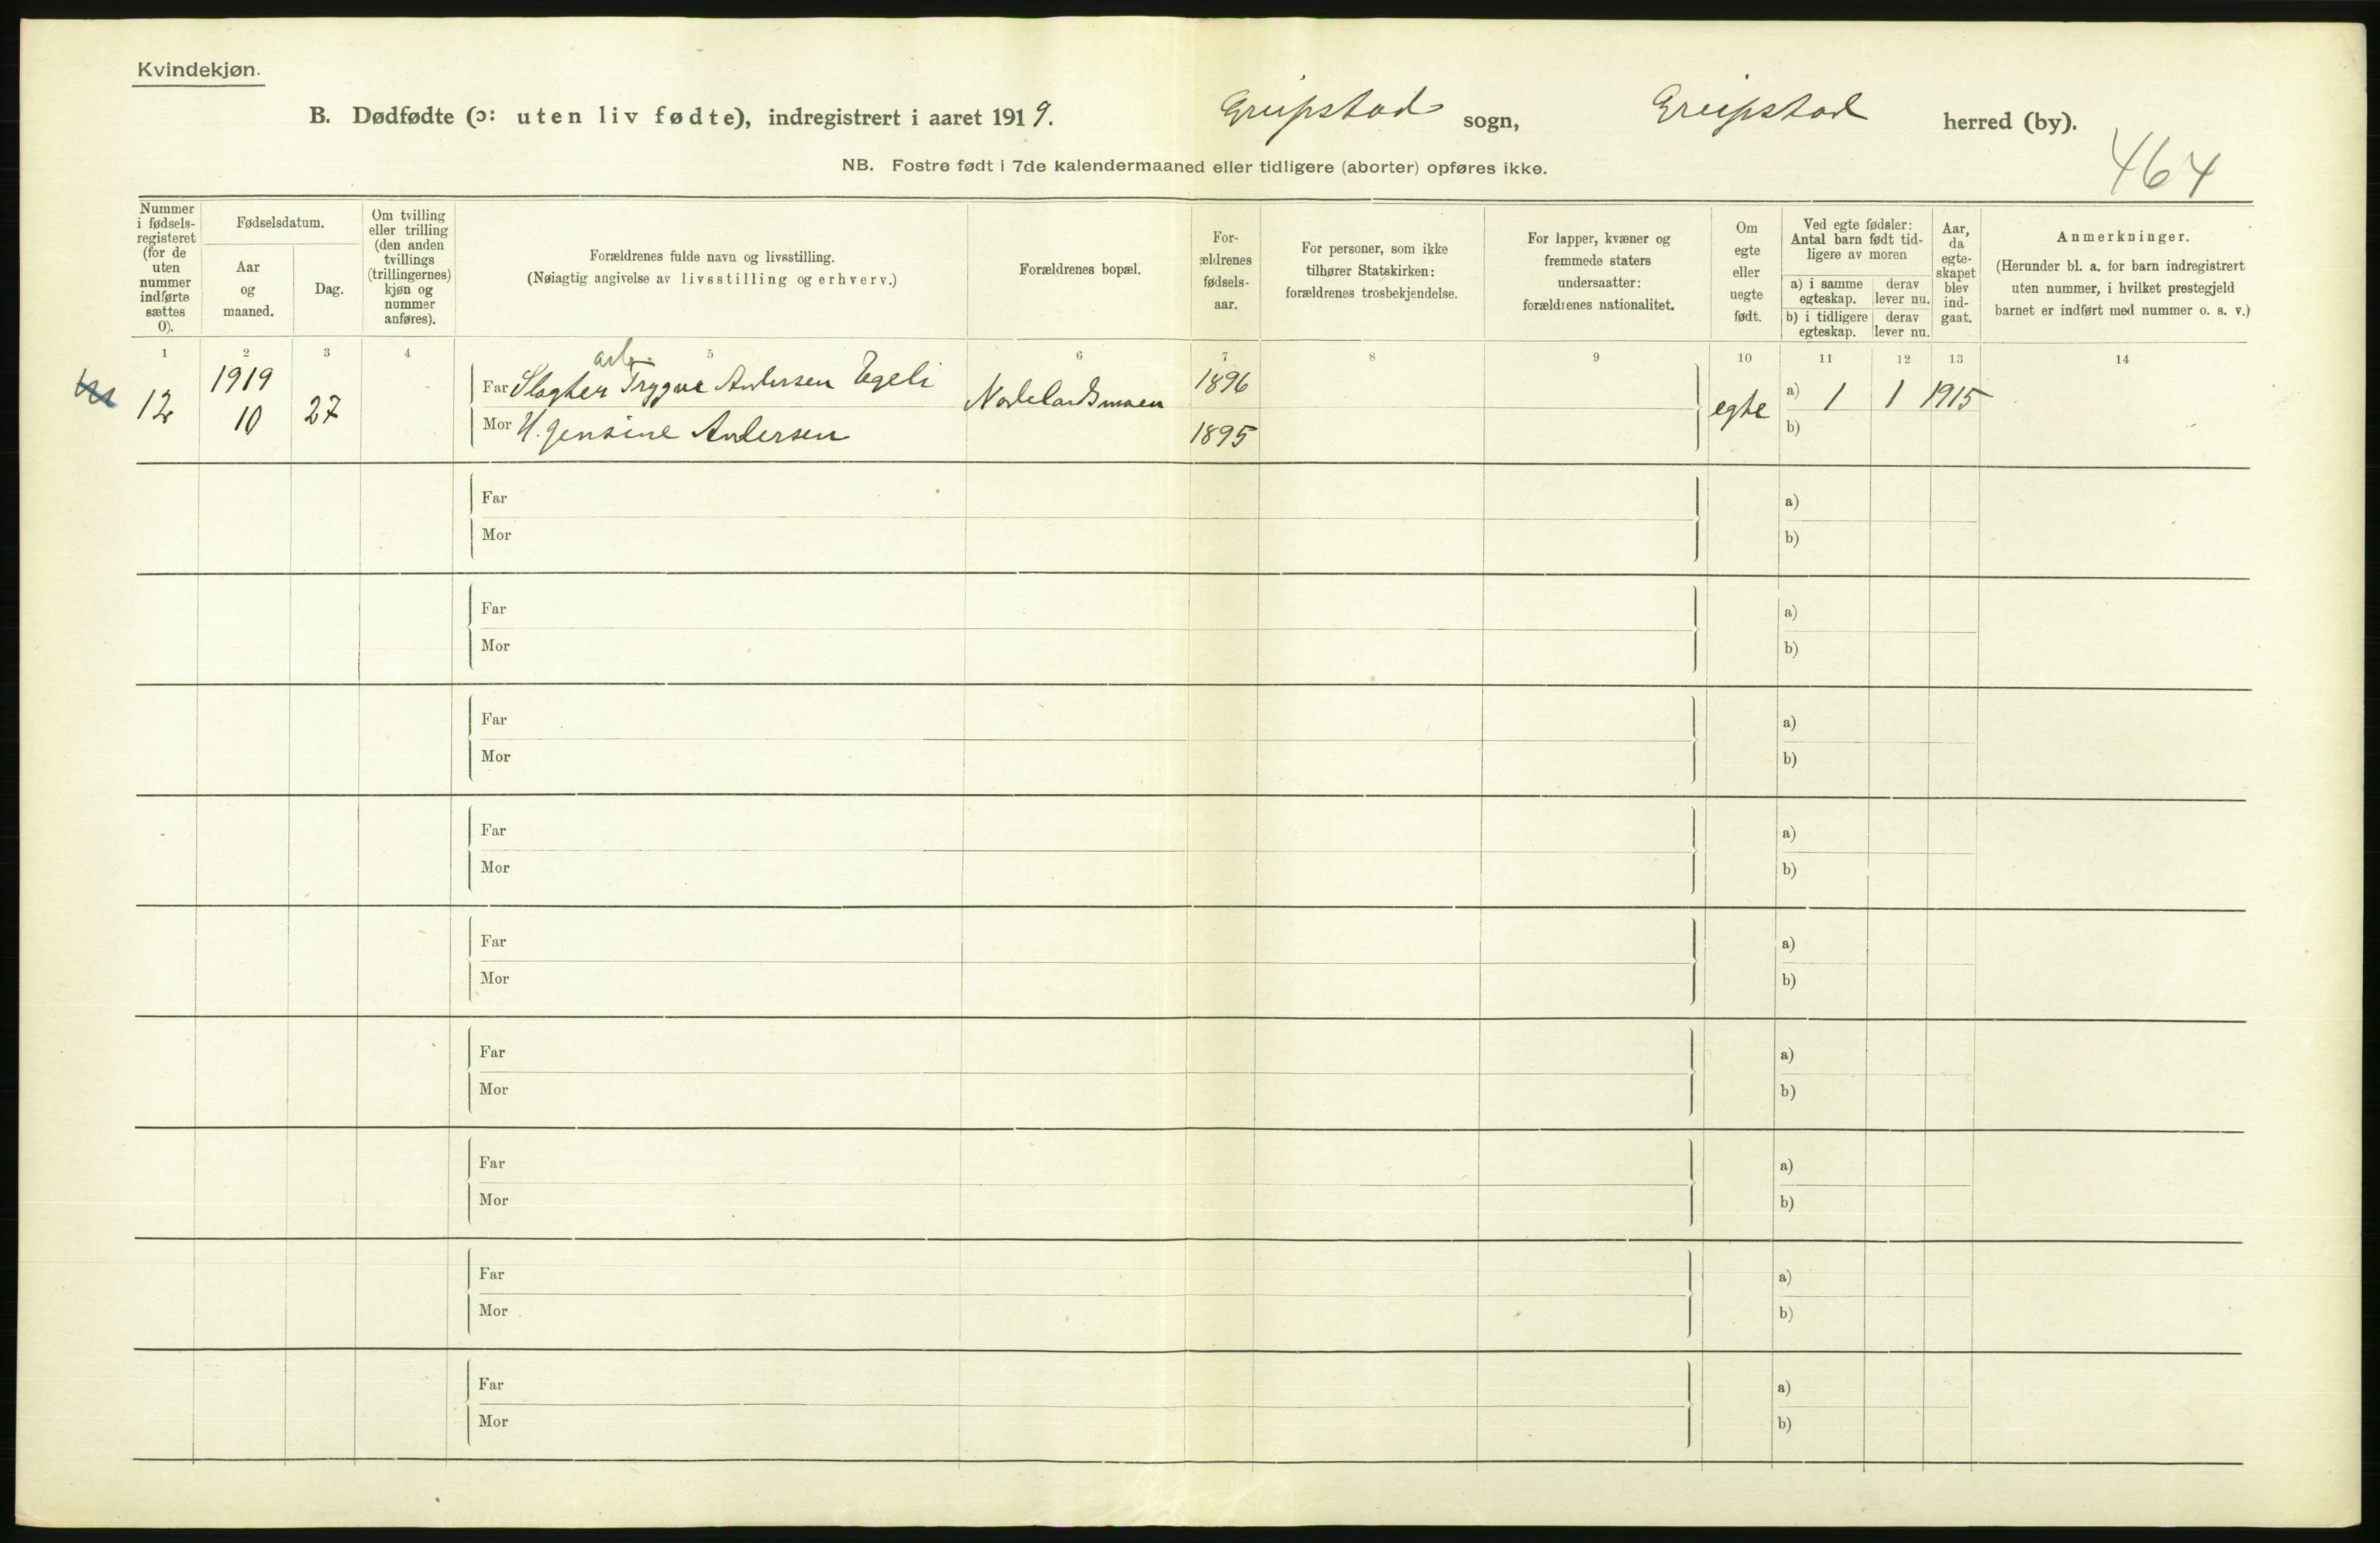 Kvindekjøn.
B. Dødfødte (ɔ: uten liv fødte), indregistrert i aaret 1919. Greipstad sogn, Greipstad herred (by).
464
NB. Fostre født i 7de kalendermaaned eller tidligere (aborter) opføres ikke.
Nummer i fødsels-registeret (for de uten nummer indførte sættes 0).
Fødselsdatum.
Aar og maaned.
Dag.
Om tvilling eller trilling (den anden tvillings (trillingernes) kjøn og nummer anføres).
Forældrenes fulde navn og livsstilling.
(Nøiagtig angivelse av livsstilling og erhverv.)
Forældrenes bopæl.
For-ældrenes fødsels-aar.
For personer, som ikke tilhører Statskirken: forældrenes trosbekjendelse.
For lapper, kvæner og fremmede staters undersaatter: forældrenes nationalitet.
Om egte eller uegte født.
Ved egte fødsler: Antal barn født tid-ligere av moren
a) i samme egteskap. derav lever nu.
b) i tidligere egteskap. derav lever nu.
Aar, da egte-skapet blev ind-gaat.
Anmerkninger.
(Herunder bl. a. for barn indregistrert uten nummer, i hvilket prestegjeld barnet er indført med nummer o. s. v.)
1 2 3 4 5 6 7 8 9 10 11 12 13 14
arb.
12 1919 10 27 Far Slagter Trygve Andersen Egeli Nodelandsmoen 1896 egte a) 1 1 1915
Mor H. Jensine Andersen 1895 b)
Far a)
Mor b)
Far a)
Mor b)
Far a)
Mor b)
Far a)
Mor b)
Far a)
Mor b)
Far a)
Mor b)
Far a)
Mor b)
Far a)
Mor b)
Far a)
Mor b)